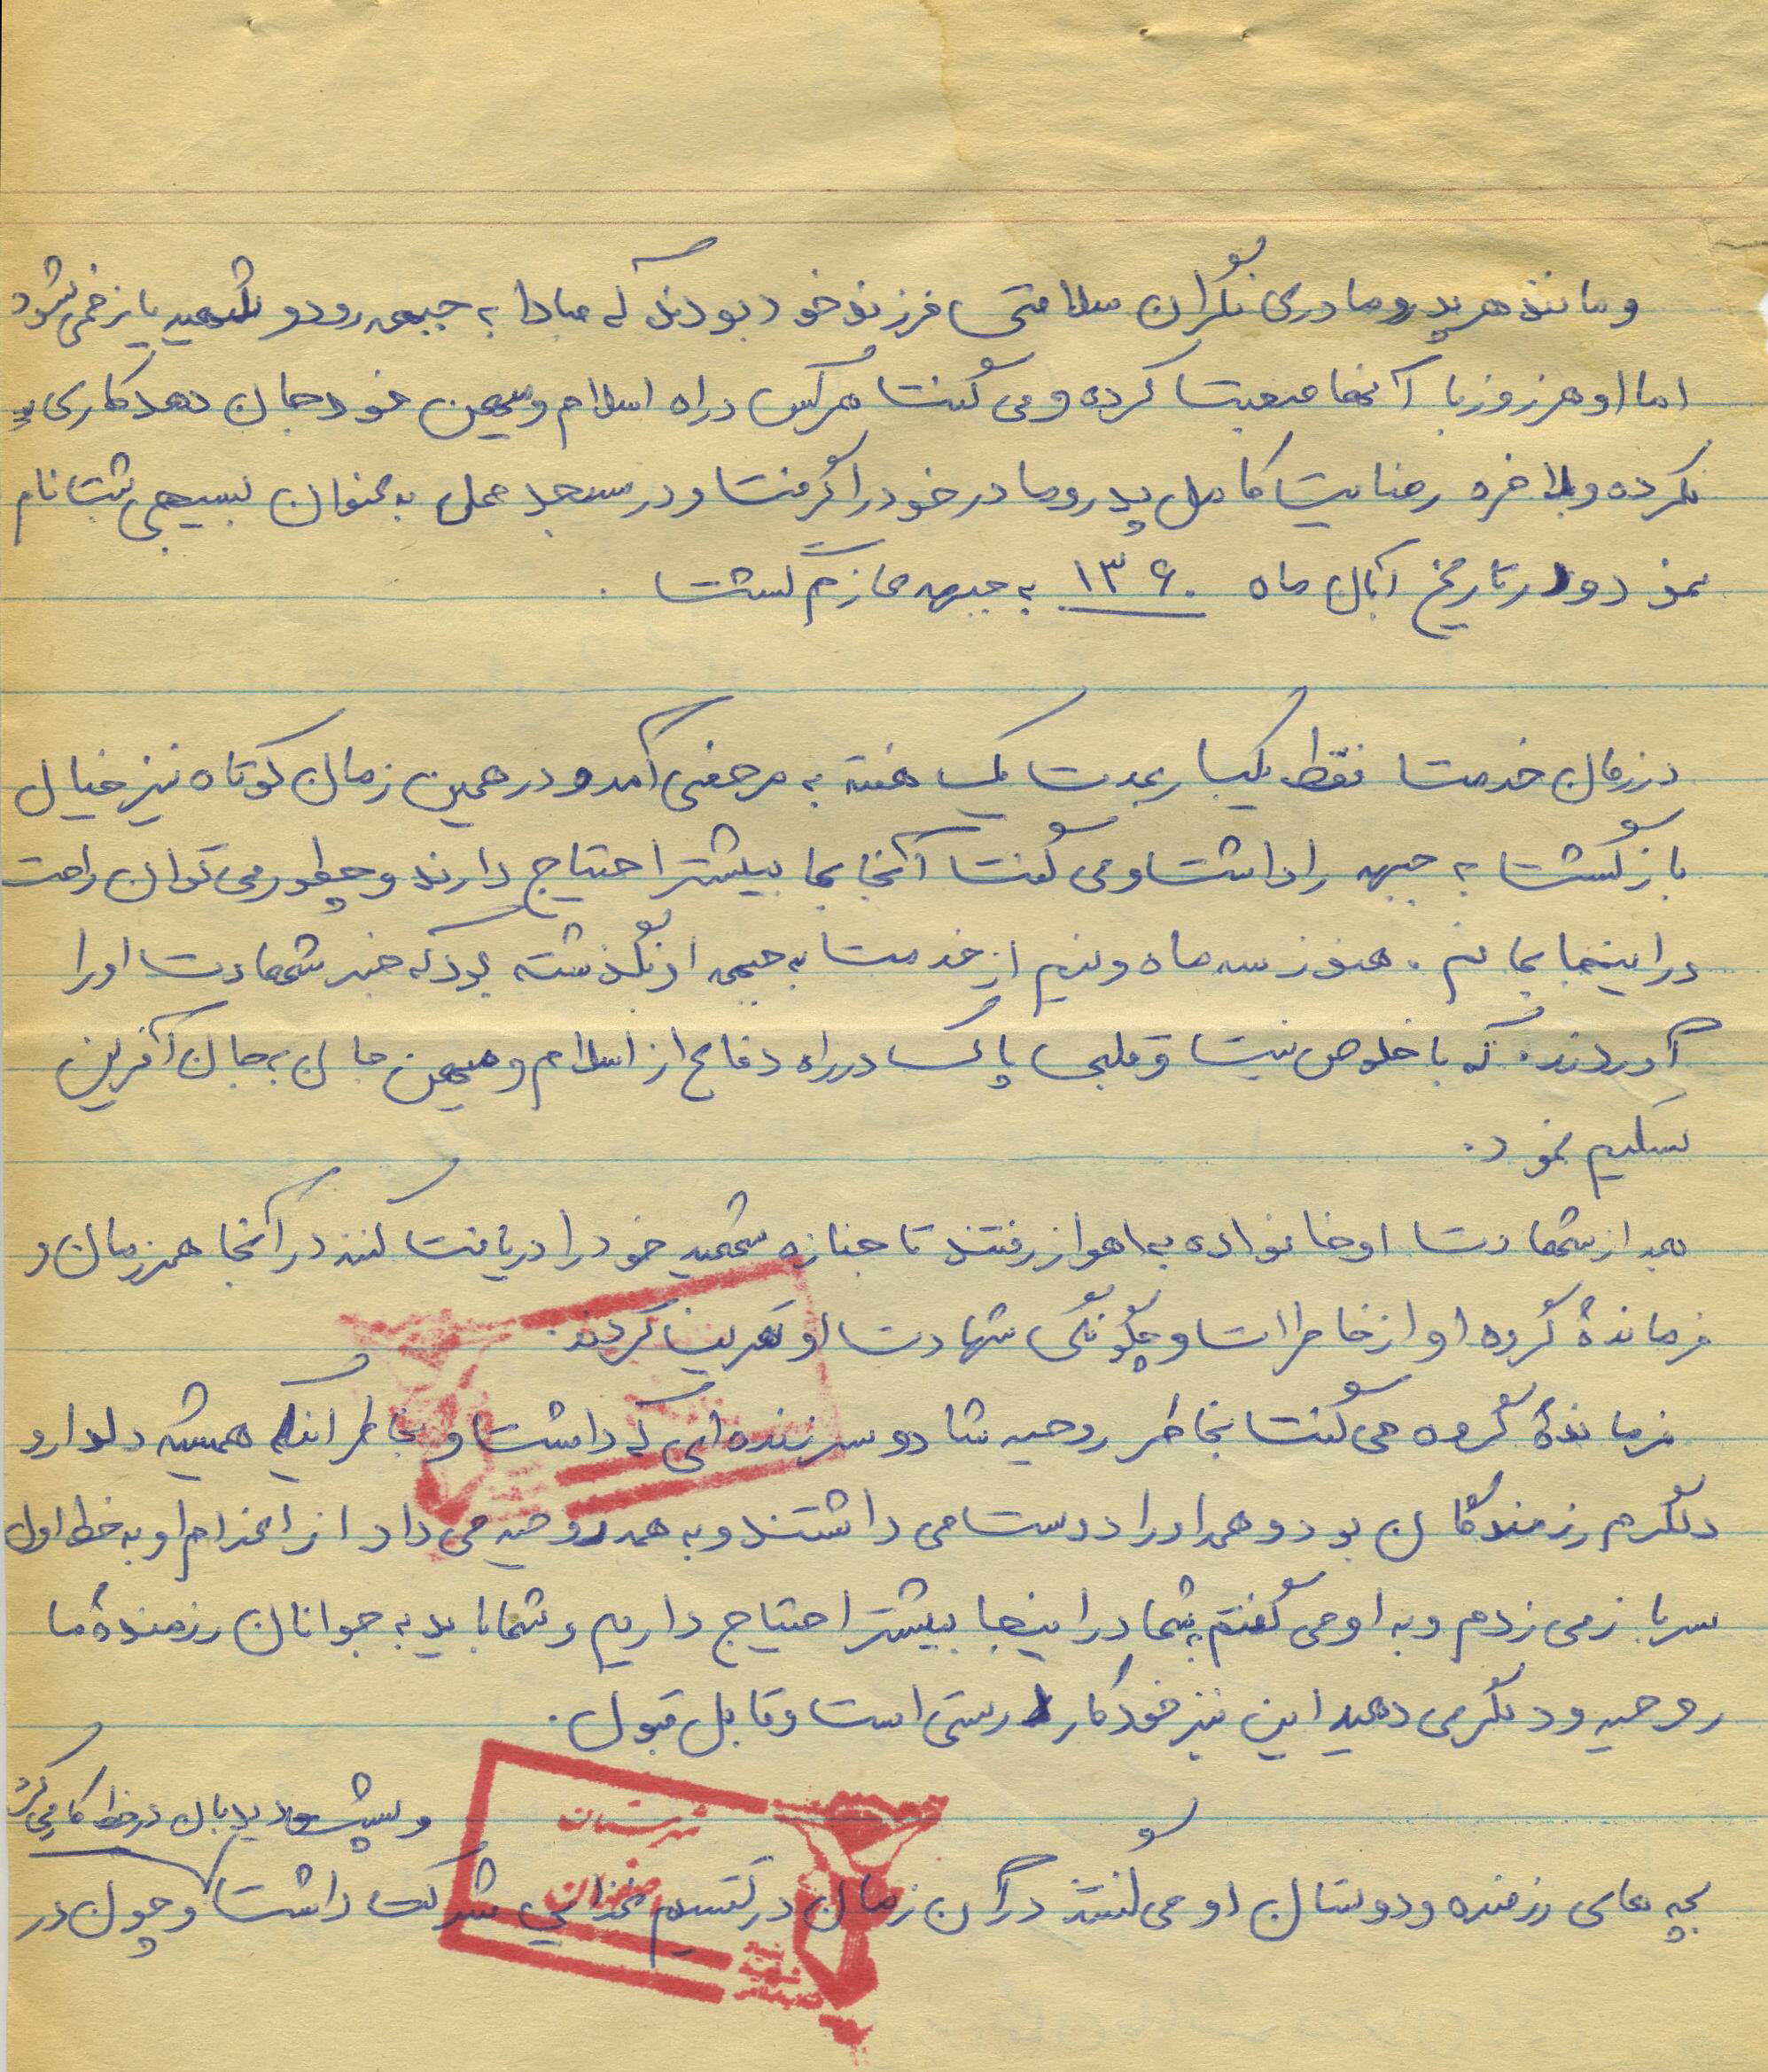 و مانند هر پدر و مادری نگران سلامتی فرزند خود بودند که مبادا به جبهه رود و شهید یا زخمی شود
اما او هر روز با آنها صحبت کرده و می گفت هر کس در راه اسلام و میهن خود جان دهد کاری
نکرده و بلاخره رضایت کامل پدر و مادر خود را گرفت و در مسجد محل به عنوان بسیجی ثبت نام
نمود و در تاریخ آبان ماه ۱۳۶۰ به جبهه عازم گشت .
در زمان خدمت فقط یکبار بمدت یک هفته به مرخصی آمد و در همین زمان کوتاه نیز خیال
بازگشت به جبهه را داشت و می گفت آنجا بما بیشتر احتیاج دارند و چطور می توان راحت
در اینجا بمانم . هنوز سه ماه و نیم از خدمت به جبهه او نگذشته بود که خبر شهادت او را
آوردند . که با خلوص نیت و قلبی پاک در راه دفاع از اسلام و میهن جان به جان آفرین
تسلیم نمود .
بعد از شهادت او خانواده به اهواز رفتند تا جنازه شهید خود را دریافت کنند در آنجا همرزمان و
فرماندهٔ گروه او از خاطرات و چگونگی شهادت او تعریف کردند .
فرماندهٔ گروه می گفت بخاطر روحیه شاد و سرزنده ای که داشت و بخاطر اینکه همیشه دلدار و
دلگرم رزمندگان بود و همه او را دوست می داشتند و به همه روحیه می داد از اعزام او به خط اول
سرباز می زدم و به او می گفتم بشما در اینجا بیشتر احتیاج داریم و شما باید به جوانان رزمندهٔ ما
روحیه و دلگرمی دهید این نیز خود کار درستی است و قابل قبول .
دیدبان در خط کار می کرد
بچه های رزمنده و دوستان او می گفتند در آن زمان در تقسیم غذایی شرکت داشت و چون در
شهرستان